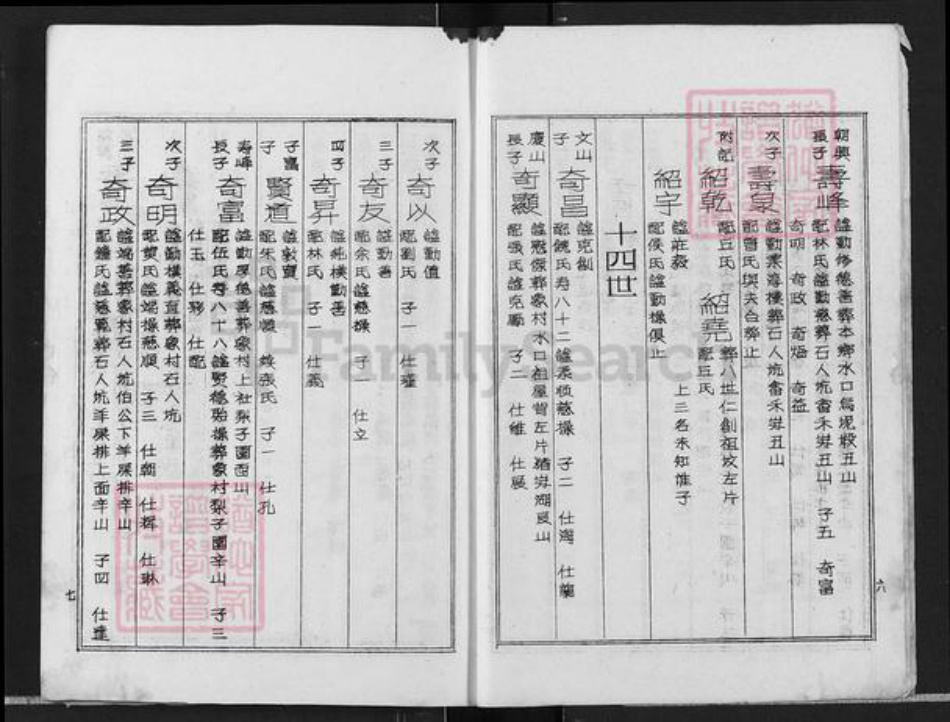 六
朝興
長子 壽峰 謚勤修慈善葬本鄉水口烏坭墩丑山
配林氏謚勤慈葬石人坑畬禾塘丑山 子五 奇富
奇明 奇政 奇 奇益
次子 壽泉 謚勤業 葬石人坑畬禾塘丑山
配曾氏與夫合葬止
附記 紹乾 配丘氏 紹堯 葬八世仁創祖坟左片
配丘氏
上三名未知誰子
紹宇 謚莊毅
配侯氏謚勤慎俱止
十四世
文山
子 奇昌 謚克創
配饒氏寿八十二謚柔 慈操 子二 仕 仕龍
慶山
長子 奇顯 葬象村水口祖屋背左片 湖艮山
配張氏謚克 子二 仕 仕展
次子 奇以 謚勤值
配劉氏 子一 仕瑾
三子 奇友 謚勤善
配余氏謚慈操 子一 仕立
四子 奇昇 謚純樸勤善
配林氏 子一 仕義
子富
子 賢道 謚敦寬
配朱氏謚慈懿 張氏 子一 仕孔
壽峰
長子 奇富 謚勤厚德善葬象村上社梨子園酉山
配伍氏寿八十八謚賢德 操葬象村梨子園辛山 子三
仕玉 仕 仕配
次子 奇明 謚勤樸義直葬象村石人坑
配黃氏謚端操慈順 子三 仕朝 仕輝 仕琳
三子 奇政 謚端善葬象村石人坑伯公下羊屎排辛山
配鍾氏謚慈 葬石人坑羊屎排上面辛山 子四 仕達
七
FamilySearch